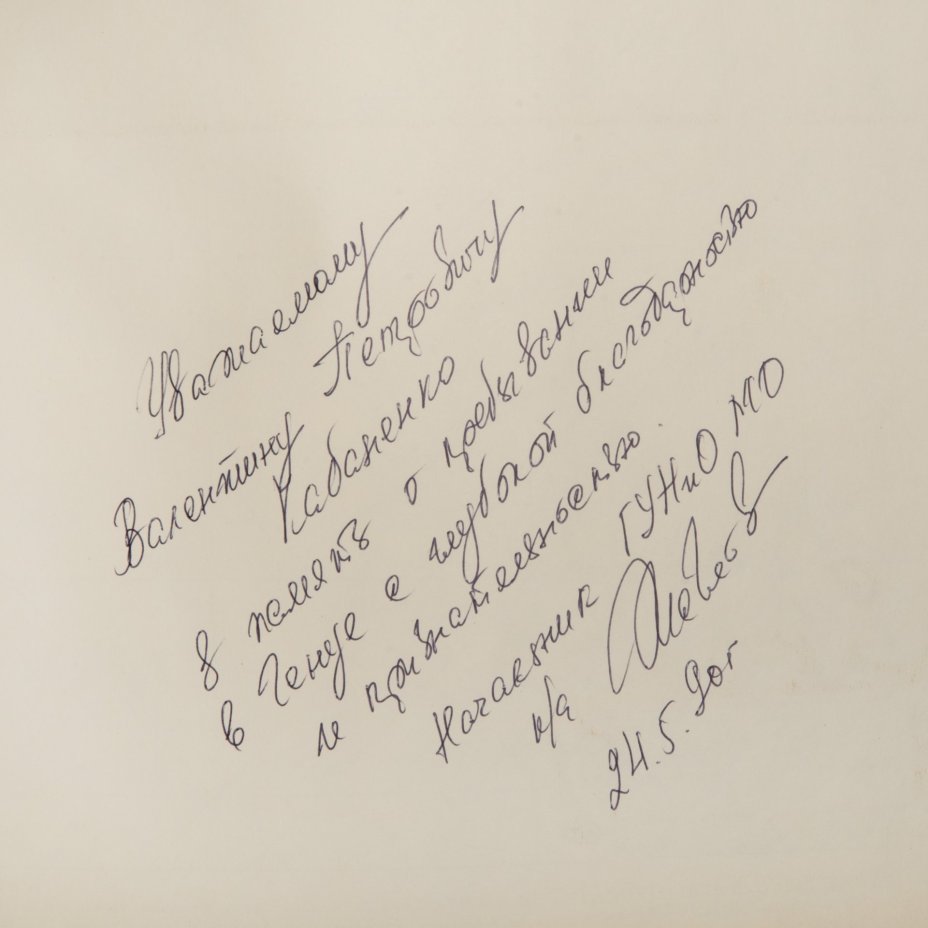 Уважаемому
Валентину Петровичу
Кабаненко
в память о пребывании
в Генуе с глубокой благодарностью
и признательностью.
Начальник ГУНиО МО
к/а
24.5.90г